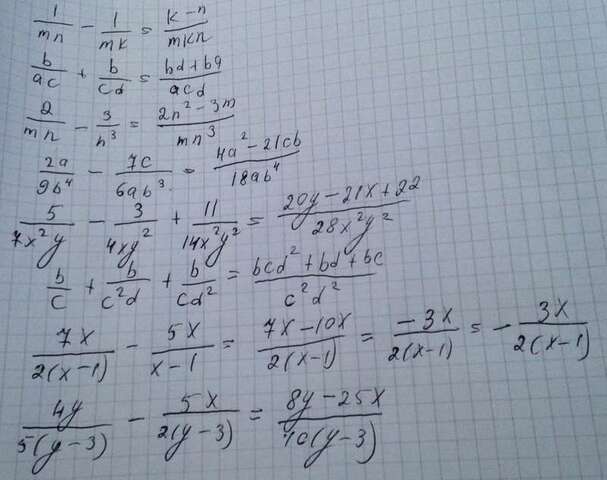 1/mn - 1/mk = (k-n)/mkn
b/ac + b/cd = (bd+ba)/acd
2/mn - 3/n³ = (2n²-3m)/mn³
2a/9b⁴ - 7c/6ab³ = (4a²-21cb)/18ab⁴
5/7x²y - 3/4xy² + 11/14x²y² = (20y-21x+22)/28x²y²
b/c + b/c²d + b/cd² = (bcd²+bd+bc)/c²d²
7x/2(x-1) - 5x/x-1 = (7x-10x)/2(x-1) = -3x/2(x-1) = - 3x/2(x-1)
4y/5(y-3) - 5x/2(y-3) = (8y-25x)/10(y-3)